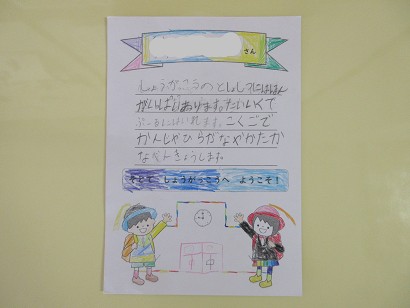 さん
しょうがっこうのとしょしつにはほん
がいっぱいあります。たいいくで
ぷーるにはいれます。こくごで
かんじやひらがなやかたか
なをべんきょうします。
そとで しょうがっこうへ ようこそ!